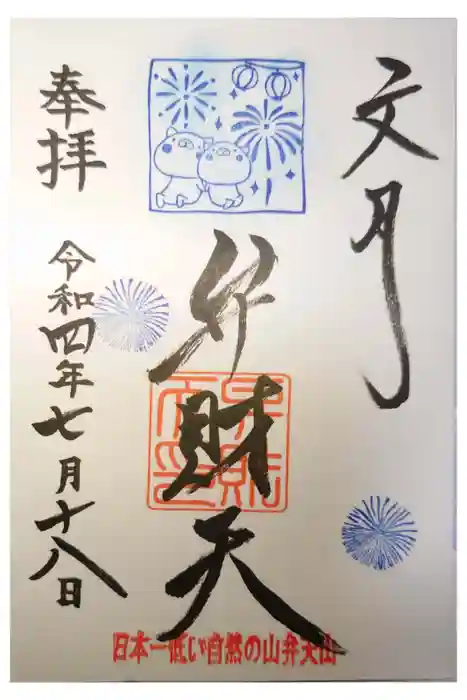 文月
弁財天
奉拝
令和四年七月十八日
日本一低い自然の山弁天山